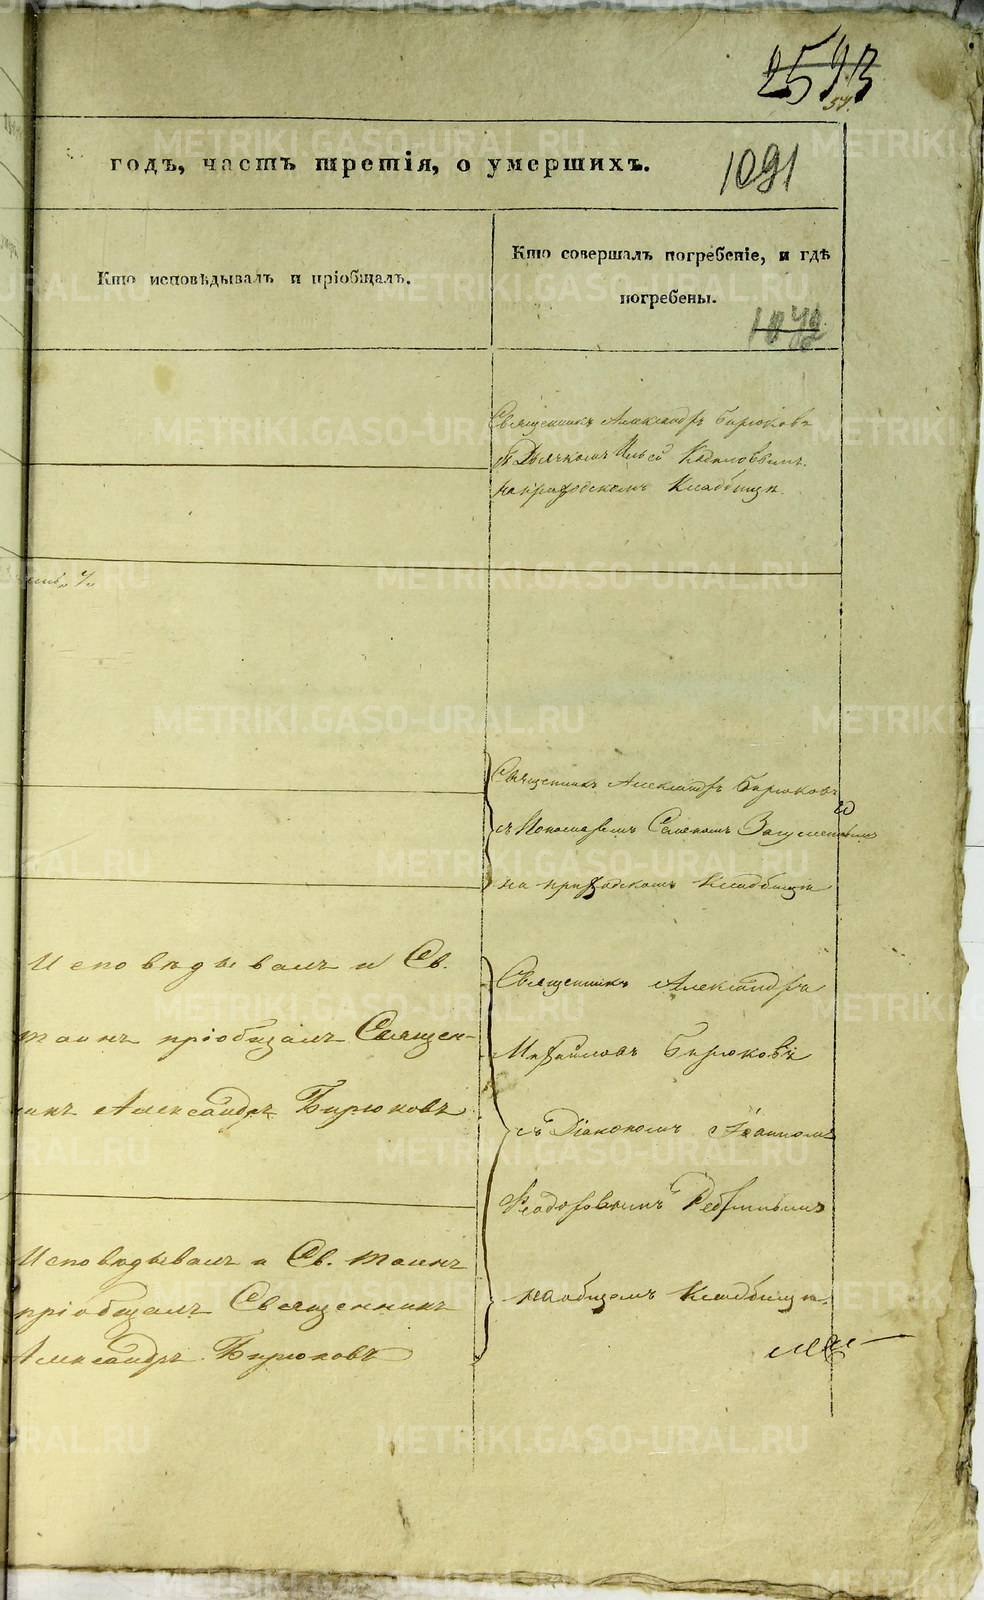 2593
57.
годъ, часть третія, о умершихъ.
1091
Кто исповѣдывалъ и пріобщалъ.
Кто совершалъ погребеніе, и гдѣ
погребены.
1072
Священникъ Александръ Бирюковъ
съ Дьячкомъ Ильей
на приходскомъ Кладбищѣ.
Священникъ Александръ Бирюковъ
съ Пономаремъ
на приходскомъ Кладбищѣ
Исповѣдывалъ и Св.
таинъ пріобщалъ Священ-
никъ Александръ Бирюковъ
Священникъ Александръ
Михайловъ Бирюковъ
съ Діакономъ Іоанномъ
Феодоровымъ
на общемъ Кладбищѣ.
Исповѣдывалъ и Св. таинъ
пріобщалъ Священникъ
Александръ Бирюковъ
METRIKI.GASO-URAL.RU